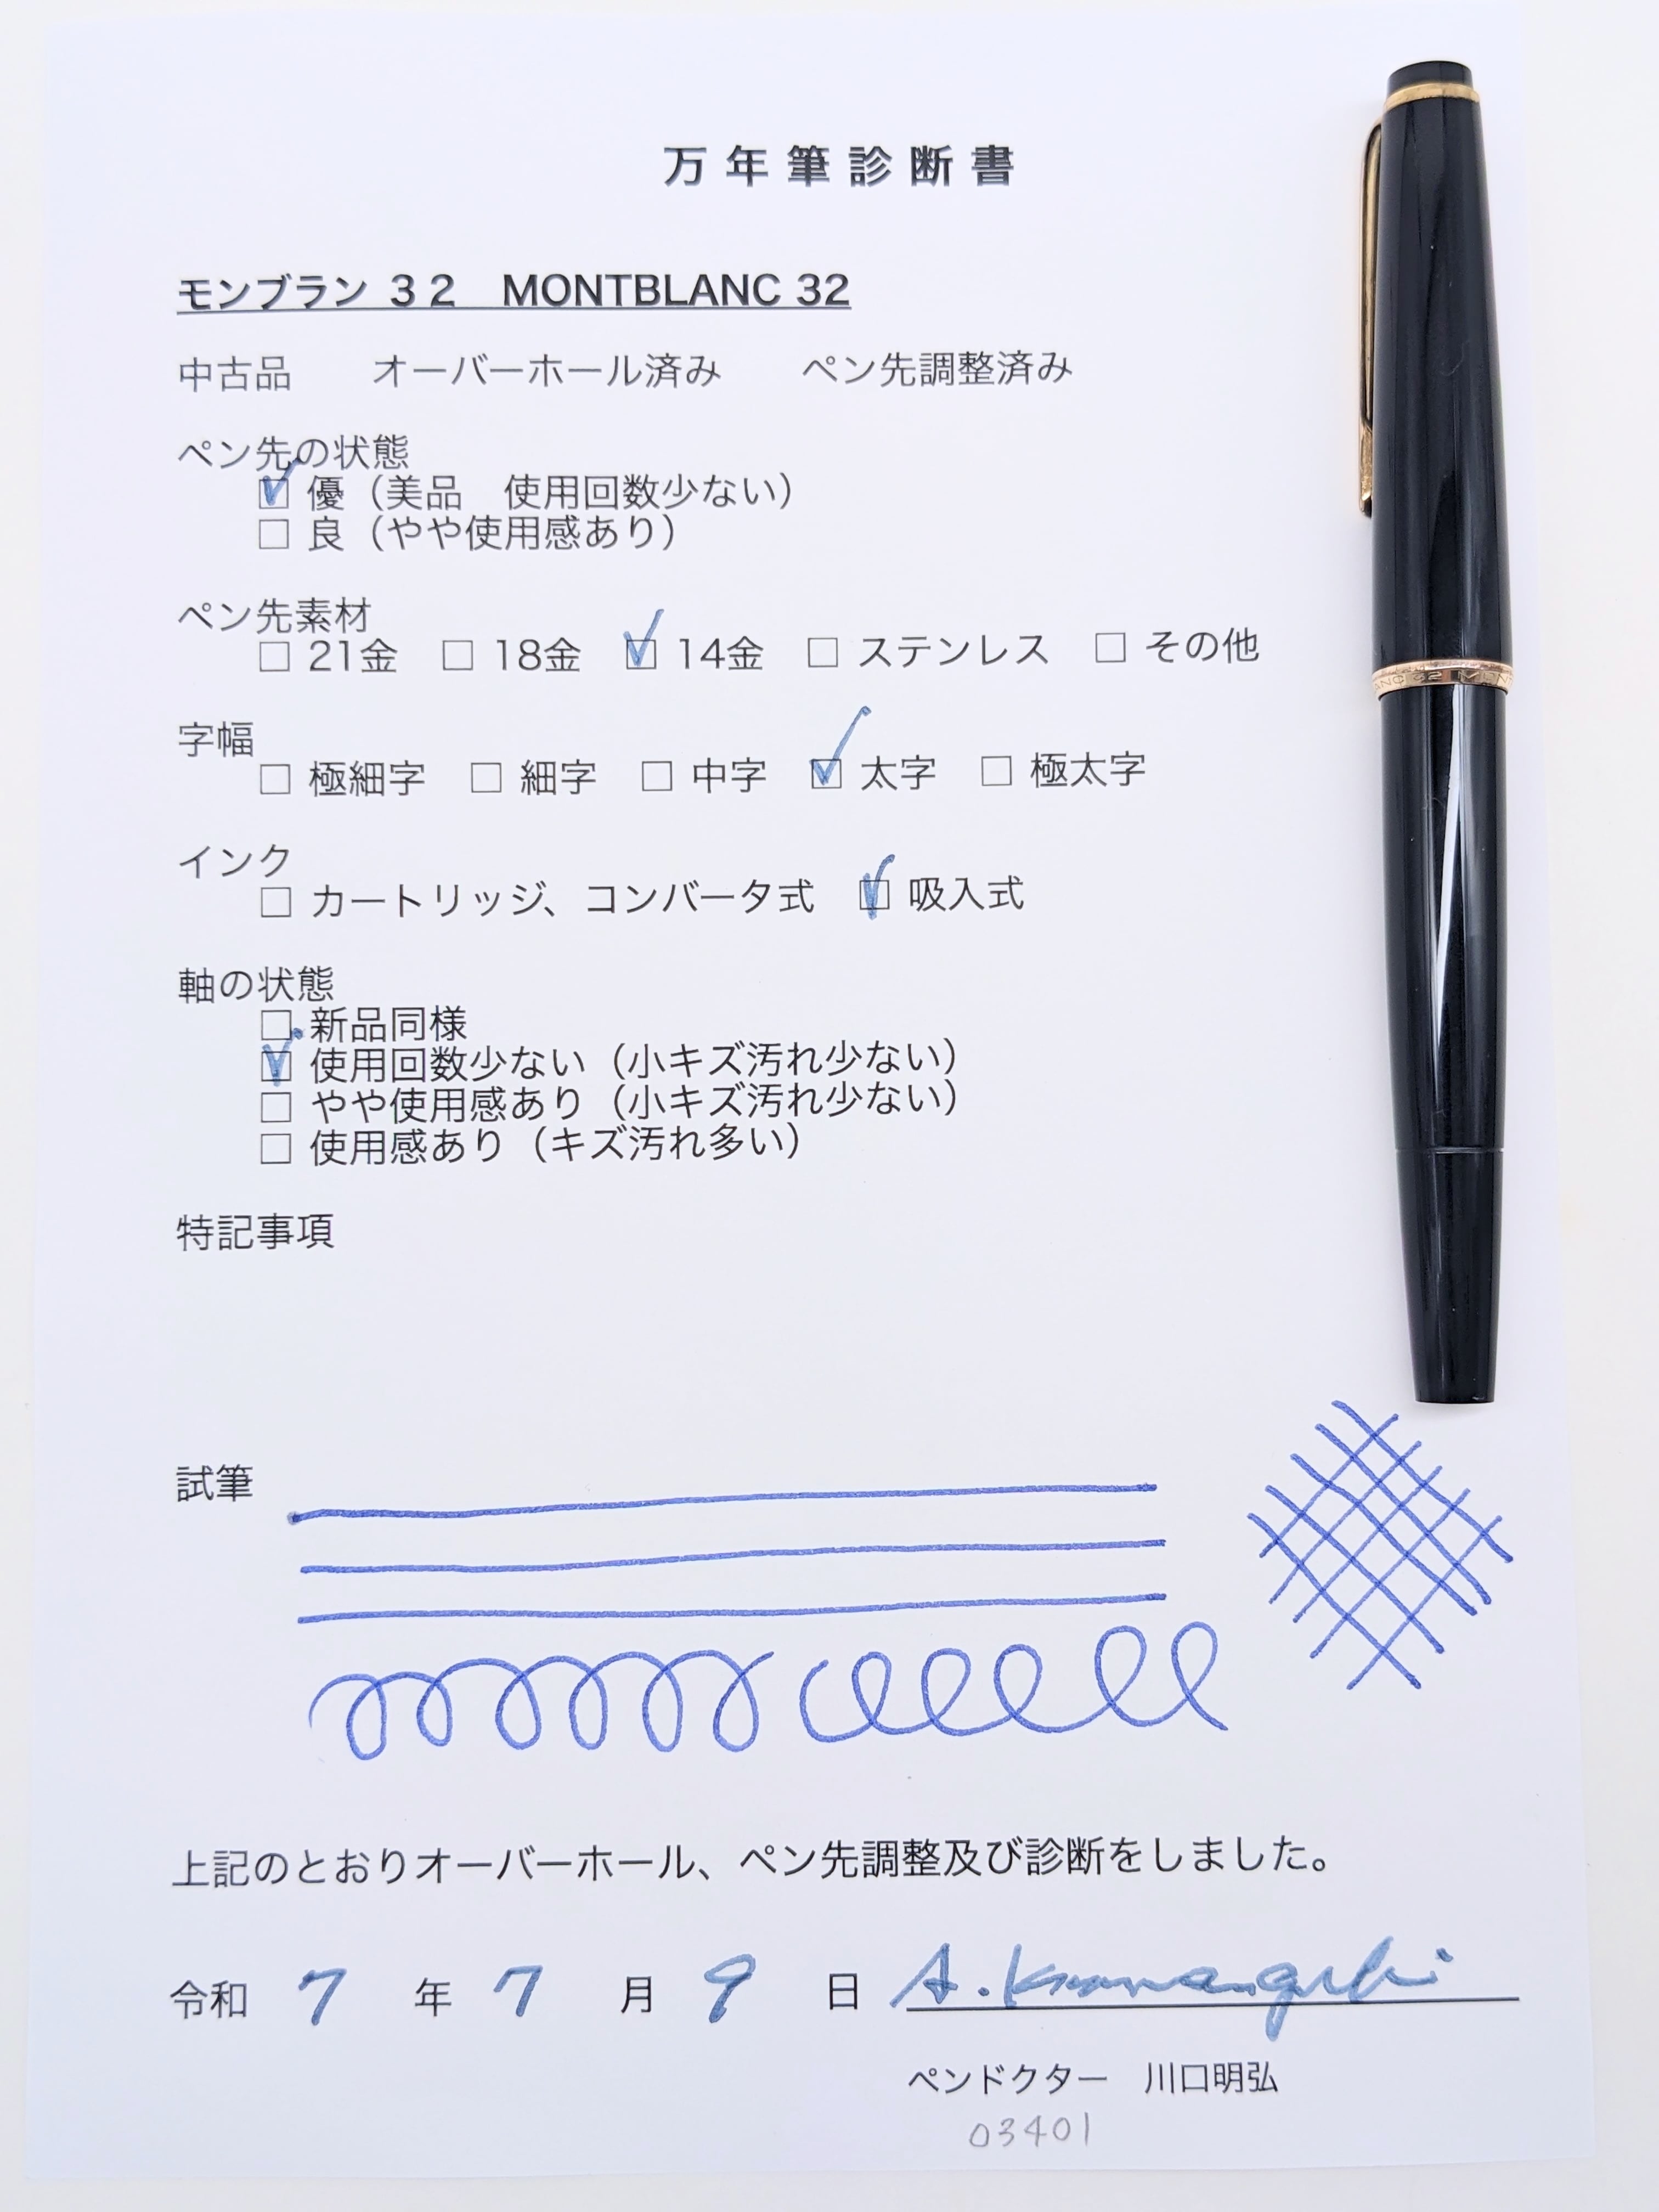 万年筆診断書
モンブラン 32　MONTBLANC 32
中古品　オーバーホール済み　ペン先調整済み
ペン先の状態
☑ 優（美品　使用回数少ない）
□ 良（やや使用感あり）
ペン先素材
□ 21金 □ 18金 ☑ 14金 □ ステンレス □ その他
字幅
□ 極細字 □ 細字 □ 中字 ☑ 太字 □ 極太字
インク
□ カートリッジ、コンバータ式 ☑ 吸入式
軸の状態
□ 新品同様
☑ 使用回数少ない（小キズ汚れ少ない）
□ やや使用感あり（小キズ汚れ少ない）
□ 使用感あり（キズ汚れ多い）
特記事項
試筆
上記のとおりオーバーホール、ペン先調整及び診断をしました。
令和 7 年 7 月 9 日 A. Kawaguchi
ペンドクター　川口明弘
03401